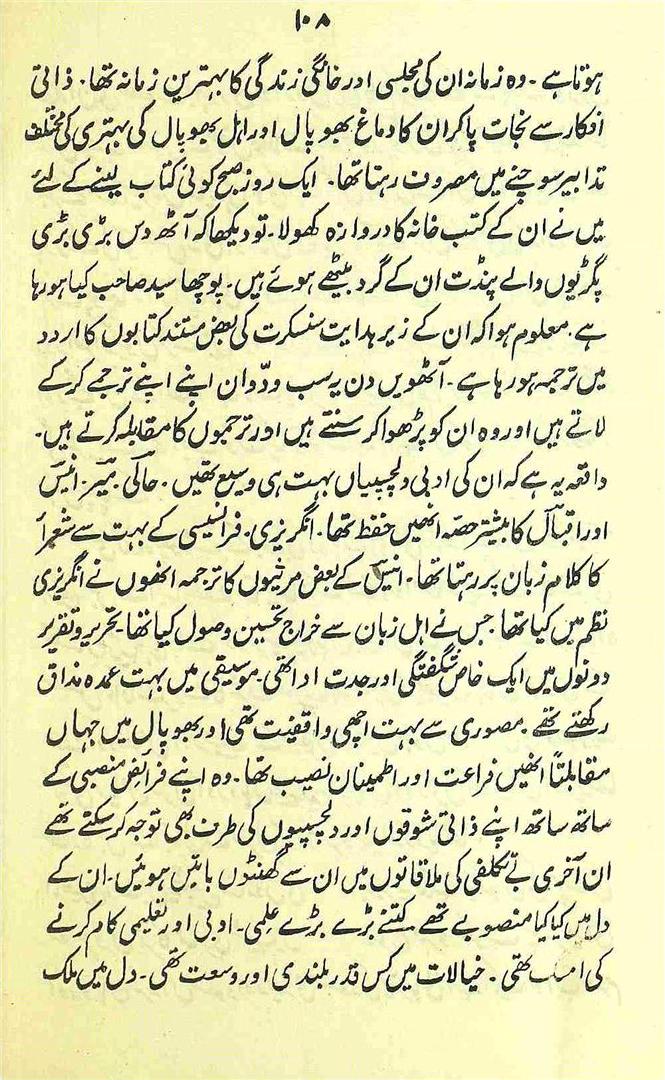 ۱۰۸
ہوتا ہے۔ وہ زمانہ ان کی مجلسی اور خانگی زندگی کا بہترین زمانہ تھا۔ ذاتی
افکار سے نجات پا کر ان کا دماغ بھوپال اور اہل بھوپال کی بہتری کی مختلف
تدابیر سوچنے میں مصروف رہتا تھا۔ ایک روز صبح کوئی کتاب لینے کے لئے
میں نے ان کے کتب خانہ کا دروازہ کھولا۔ تو دیکھا کہ آٹھ دس بڑی بڑی
پگڑیوں والے پنڈت ان کے گرد بیٹھے ہوئے ہیں۔ پوچھا سید صاحب کیا ہو رہا
ہے۔ معلوم ہوا کہ ان کے زیر ہدایت سنسکرت کی بعض مستند کتابوں کا اردو
میں ترجمہ ہو رہا ہے۔ آٹھویں دن یہ سب ودّوان اپنے اپنے ترجمے کر کے
لاتے ہیں اور وہ ان کو پڑھوا کر سنتے ہیں اور ترجموں کا مقابلہ کرتے ہیں۔
واقعہ یہ ہے کہ ان کی ادبی دلچسپیاں بہت ہی وسیع تھیں۔ حالی۔ میر۔ انیس
اور اقبال کا بیشتر حصّہ انھیں حفظ تھا۔ انگریزی۔ فرانسیسی کے بہت سے شعرأ
کا کلام زبان پر رہتا تھا۔ انیس کے بعض مرثیوں کا ترجمہ انھوں نے انگریزی
نظم میں کیا تھا جس نے اہل زبان سے خراج تحسین وصول کیا تھا۔ تحریر و تقریر
دونوں میں ایک خاص شگفتگی اور جدت ادا تھی۔ موسیقی میں بہت عمدہ مذاق
رکھتے تھے۔ مصوری سے بہت اچھی واقفیت تھی اور بھوپال میں جہاں
مقابلتاً انھیں فراغت اور اطمینان نصیب تھا۔ وہ اپنے فرائض منصبی کے
ساتھ ساتھ اپنے ذاتی شوقوں اور دلچسپیوں کی طرف بھی توجہ کر سکتے تھے
ان آخری بے تکلفی کی ملاقاتوں میں ان سے گھنٹوں باتیں ہوئیں۔ ان کے
دل میں کیا کیا منصوبے تھے کتنے بڑے بڑے علمی۔ ادبی اور تعلیمی کام کرنے
کی امنگ تھی۔ خیالات میں کس قدر بلندی اور وسعت تھی۔ دل میں ملک